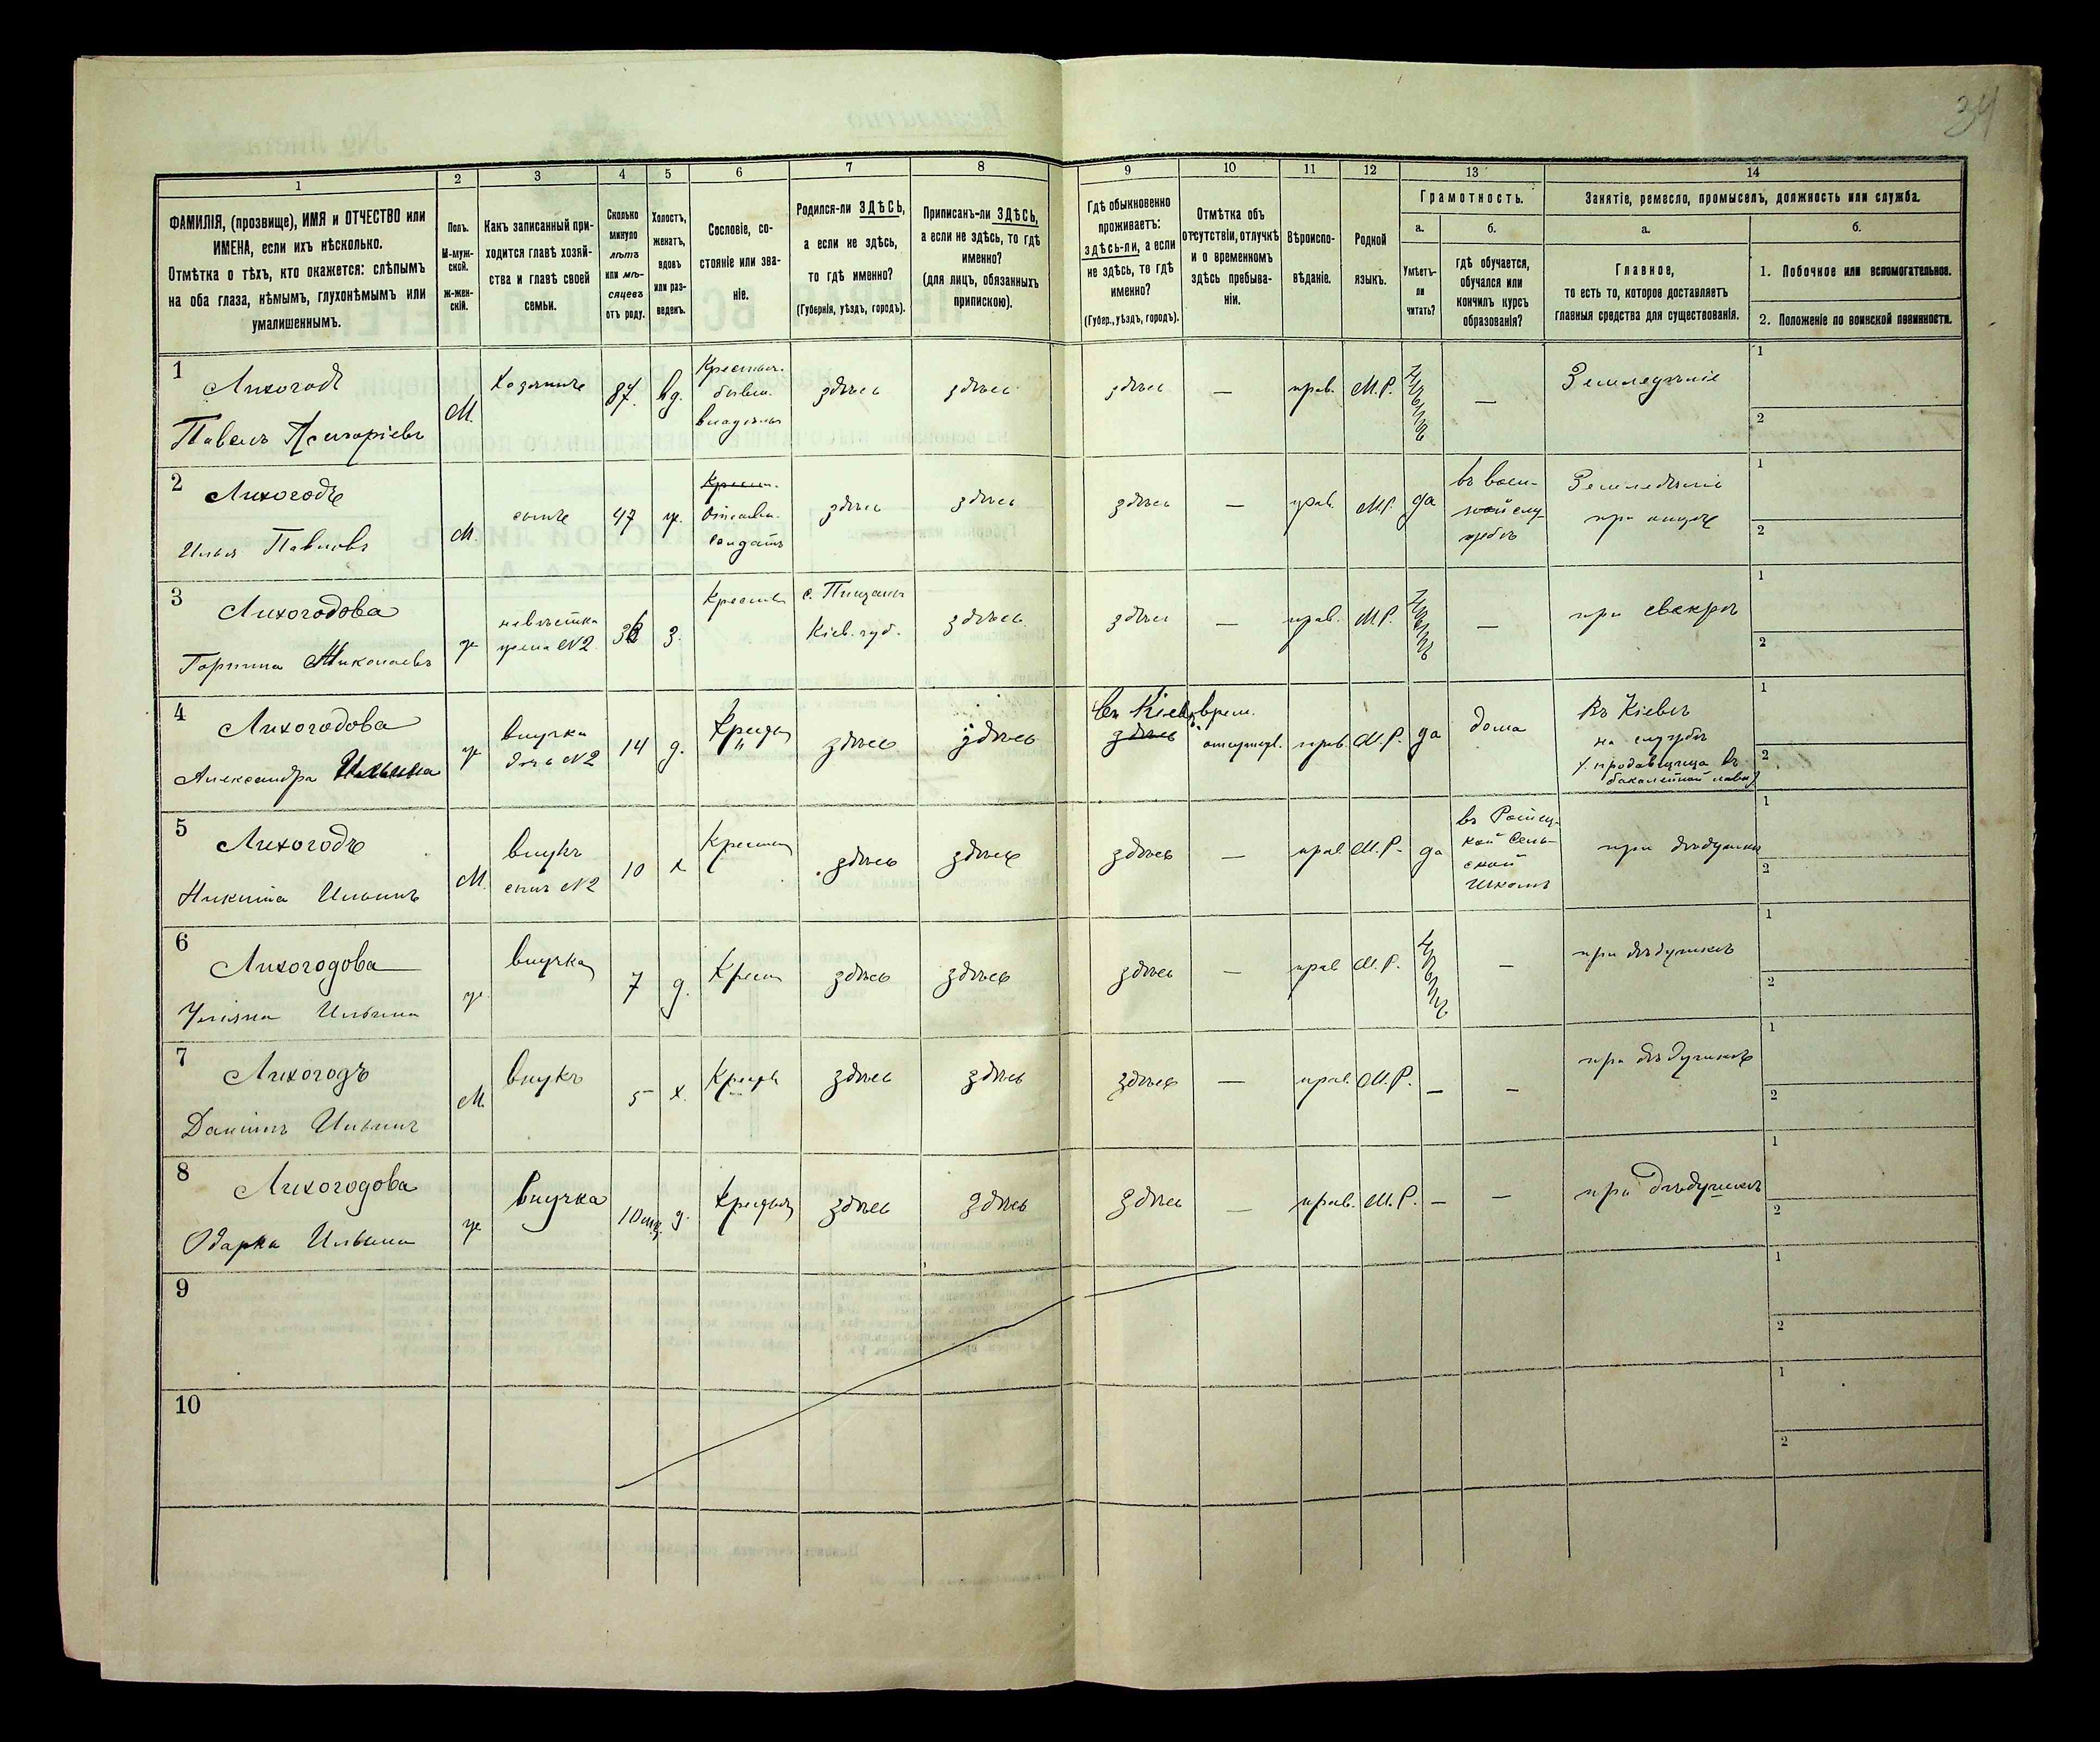 34
1
2
3
4
5
6
7
8
9
10
11
12
13
14
ФАМИЛІЯ, (прозвище), ИМЯ и ОТЧЕСТВО или
ИМЕНА, если ихъ нѣсколько.
Отмѣтка о тѣхъ, кто окажется: слѣпымъ
на оба глаза, нѣмымъ, глухонѣмымъ или
умалишеннымъ.
Полъ.
М-муж-
ской.
Ж-жен-
скій.
Какъ записанный при-
ходится главѣ хозяй-
ства и главѣ своей
семьи.
Сколько
минуло
лѣтъ
или мѣ-
сяцевъ
отъ роду.
Холостъ,
женатъ,
вдовъ
или раз-
веденъ.
Сословіе, со-
стояніе или зва-
ніе.
Родился-ли ЗДѢСЬ,
а если не здѣсь,
то гдѣ именно?
(Губернія, уѣздъ, городъ).
Приписанъ-ли ЗДѢСЬ,
а если не здѣсь, то гдѣ
именно?
(для лицъ, обязанныхъ
припискою).
Гдѣ обыкновенно
проживаетъ:
здѣсь-ли, а если
не здѣсь, то гдѣ
именно?
(Губер., уѣздъ, городъ).
Отмѣтка объ
отсутствіи, отлучкѣ
и о временномъ
здѣсь пребыва-
ніи.
Вѣроиспо-
вѣданіе.
Родной
языкъ.
Грамотность.
а.
Умѣетъ-
ли
читать?
б.
гдѣ обучается,
обучался или
кончилъ курсъ
образованія?
Занятіе, ремесло, промыселъ, должность или служба.
а.
Главное,
то есть то, которое доставляетъ
главныя средства для существованія.
б.
1. Побочное или вспомогательное.
2. Положеніе по воинской повинности.
1
Лихогодъ
Павелъ
М.
Хозяинъ
87.
вд.
Крестьян.
бывш.
здѣсь
здѣсь
здѣсь
—
прав.
М.Р.
—
Земледѣліе
1
2
2
Лихогодъ
Илья Павловъ
М.
сынъ
47
ж.
Отставн.
Солдатъ
здѣсь
здѣсь
здѣсь
—
прав.
М.Р.
да
въ воен-
ной слу-
жбѣ
Земледѣліе
при отцѣ
1
2
3
Лихогодова
Горпина Николаевъ
ж
невѣстка
жена №2
з.
Крестьян
с.
Кіев. губ.
здѣсь
здѣсь
—
прав.
М.Р.
—
при свекрѣ
1
2
4
Лихогодова
Александра Ильина
ж
внучка
дочь №2
14
д.
здѣсь
здѣсь
въ Кіевѣ
здѣсь
врем.
отсутств.
прав.
М.Р.
да
дома
Въ Кіевѣ
на службѣ
продавщица въ
бакалейной лавк)
1
2
5
Лихогодъ
Никита Ильинъ
М.
внукъ
сынъ №2
10
х
здѣсь
здѣсь
здѣсь
—
прав.
М.Р.
да
въ
кой Сель-
ской
Школѣ
при дѣдушкѣ
1
2
6
Лихогодова
Уліяна Ильина
ж.
внучка
7
д.
Крест
здѣсь
здѣсь
здѣсь
—
прав
М.Р.
—
при дѣдушкѣ
1
2
7
Лихогодъ
Даніилъ Ильинъ
М.
внукъ
5
х.
здѣсь
здѣсь
здѣсь
—
прав.
М.Р.
—
—
при дѣдушкѣ
1
2
8
Лихогодова
Одарка Ильина
ж
внучка
10 мц.
д.
здѣсь
здѣсь
здѣсь
—
прав.
М.Р.
—
—
при дѣдушкѣ
1
2
9
1
2
10
1
2